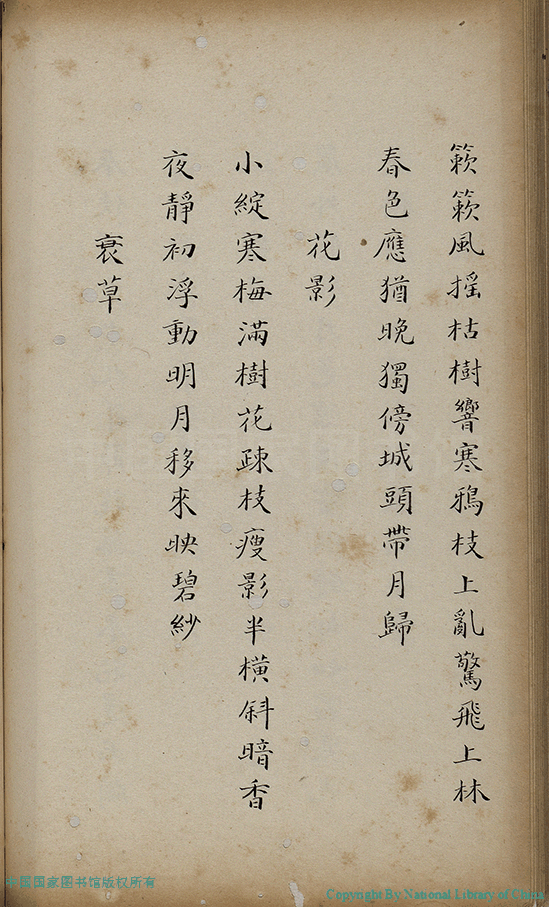 簌簌風摇枯樹響寒鴉枝上亂驚飛上林
春色應猶晚獨傍城頭帶月歸
花影
小綻寒梅滿樹花疎枝瘦影半橫斜暗香
夜靜初浮動明月移來映碧紗
衰草
中国国家图书馆版权所有
Copyright By National Library of China